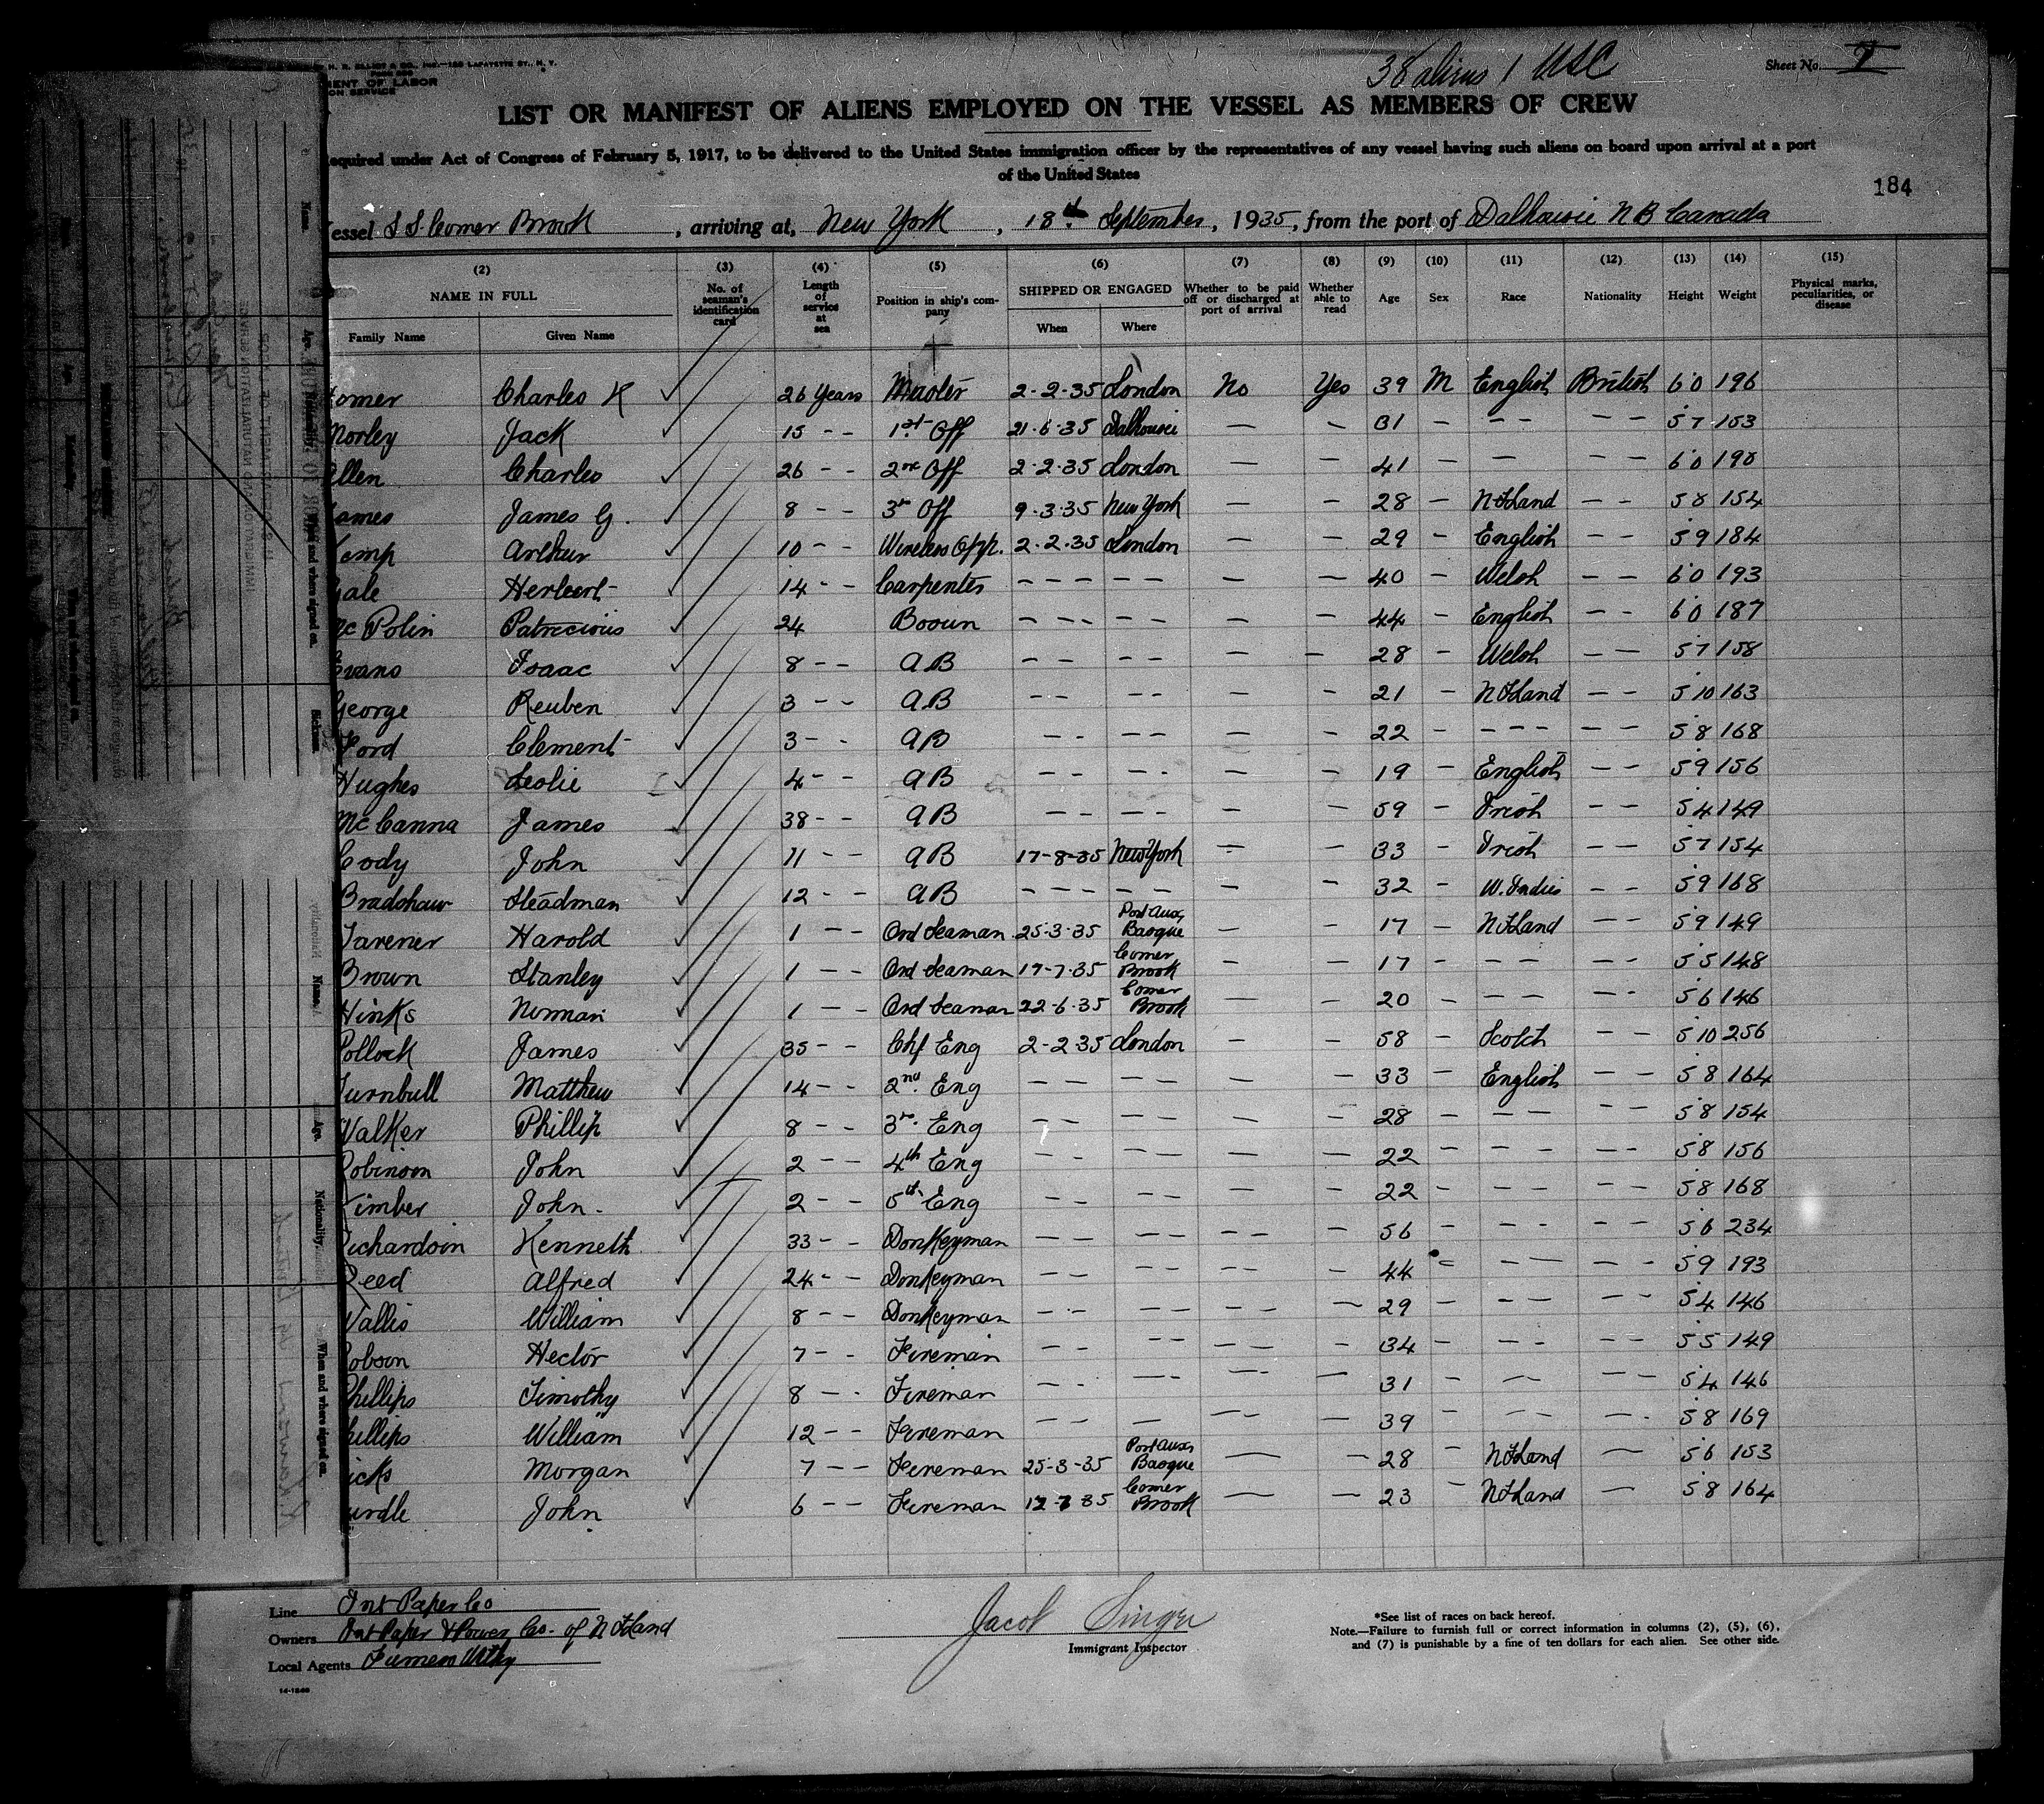 38 aliens 1 USC
Sheet No. 1
MENT OF LABOR
ON SERVICE
LIST OR MANIFEST OF ALIENS EMPLOYED ON THE VESSEL AS MEMBERS OF CREW
equired under Act of Congress of February 5, 1917, to be delivered to the United States immigration officer by the representatives of any vessel having such aliens on board upon arrival at a port
of the United States
184
essel S S Corner Brook, arriving at, New York, 18th September, 1935, from the port of Dalhousie N B Canada
(2) (3) (4) (5) (6) (7) (8) (9) (10) (11) (12) (13) (14) (15)
NAME IN FULL No. of seaman's identification card Length of service at sea Position in ship's company SHIPPED OR ENGAGED Whether to be paid off or discharged at port of arrival Whether able to read Age Sex Race Nationality Height Weight Physical marks, peculiarities, or disease
Family Name Given Name When Where
omer Charles K 26 Years Master 2-2-35 London No Yes 39 M English British 6 0 196
Morley Jack 15 - - 1st Off 21-6-35 Dalhousie — - 31 - - - - - 5 7 153
llen Charles 26 - - 2nd Off 2-2-35 London — - 41 - - - - - 6 0 198
ames James G. 8 - - 3rd Off 9-3-35 New York — - 28 - NFLand - - 5 8 154
emp Arthur 10 - - Wireless Opp. 2-2-35 London — - 29 - English - - 5 9 184
ale Herbert 14 - - Carpenter - - - - - — - 40 - Welsh - - 6 0 193
Mc Polin Patrecious 24 Bosun - - - - - — - 44 - English - - 6 0 187
vans Isaac 8 - - A B - - - - — - 28 - Welsh - - 5 7 158
George Reuben 3 - - A B - - - - — - 21 - NFLand - - 5 10 163
Ford Clement 3 - - A B - - - - — - 22 - - - - - - 5 8 168
Hughes Leslie 4 - - A B - - - - — - 19 - English - - 5 9 156
McCanna James 38 - - A B - - - - — - 59 - Irish - - 5 4 149
Cody John 11 - - A B 17-8-35 New York — - 33 - Irish - - 5 7 154
Bradshaw Steadman 12 - - A B - - - - - — - 32 - W. Indies - - 5 9 168
Tarener Harold 1 - - Ord Seaman 25-3-35 Port Aux Basque — - 17 - NFLand - - 5 9 149
Brown Stanley 1 - - Ord Seaman 17-7-35 Corner Brook — - 17 - - - - - - 5 5 148
Hinks Norman 1 - - Ord Seaman 22-6-35 Corner Brook — - 20 - - - - - 5 6 146
Pollock James 35 - - Chf Eng 2-2-35 London — - 58 - Scotch - - 5 10 256
Turnbull Matthew 14 - - 2nd Eng - - - - — - 33 - English - - 5 8 164
Walker Phillip 8 - - 3rd Eng - - - - - — - 28 - - - - - 5 8 154
obinson John 2 - - 4th Eng - - - - - — - 22 - - - - - 5 8 156
imber John 2 - - 5th Eng - - - - — - 22 - - - - - 5 8 168
ichardson Kenneth 33 - - Donkeyman - - - - - - - 56 - - - - - 5 6 234
eed Alfred 24 - - Donkeyman - - - - - - - 44 - - - - - 5 9 193
Wallis William 8 - - Donkeyman - - - - - - - 29 - - - - - 5 4 146
obson Hector 7 - - Fireman - - - - - - - 34 - - - - - 5 5 149
Phillips Timothy 8 - - Fireman - - - - - - - 31 - - - - 5 4 146
hillips William 12 - - Fireman - - - - - - 39 - - - - - 5 8 169
icks Morgan 7 - - Fireman 25-3-35 Port Aux Basque — - 28 - NFLand — 5 6 153
urdle John 6 - - Fireman 12-7-35 Corner Brook — - 23 - NFLand — 5 8 164
Line Int Paper Co
Owners Int Paper & Power Co. of NFLand
Local Agents Furness Withy
Jacob Singer
Immigrant Inspector
*See list of races on back hereof.
Note.—Failure to furnish full or correct information in columns (2), (5), (6),
and (7) is punishable by a fine of ten dollars for each alien. See other side.